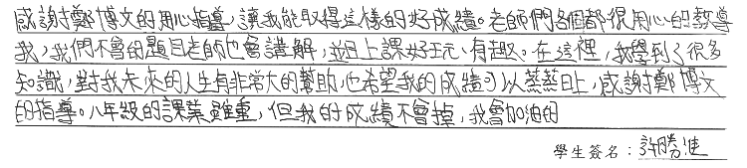 感謝鄭博文的用心指導，讓我能取得這樣的好成績。老師們各個都很用心的教導
我，我們不會的題目老師也會講解，並且上課好玩、有趣。在這裡，我學到了很多
知識，對我未來的人生有非常大的幫助，也希望我的成績可以蒸蒸日上，感謝鄭博文
的指導。八年級的課業雖重，但我的成績不會掉，我會加油的
學生簽名：許勝進